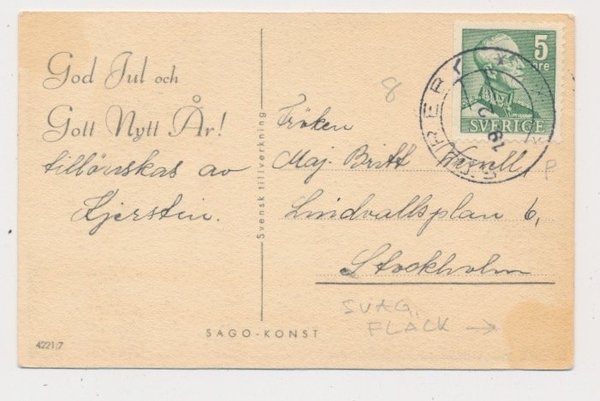 God Jul och
Gott Nytt År!
tillönskas av
Kjerstin.
Svensk tillverkning
SAGO-KONST
4221/7
5
öre
SVERIGE
8
Fröken
Maj-Britt
Lindvallsplan 6,
Stockholm
P
SVAG.
FLACK →